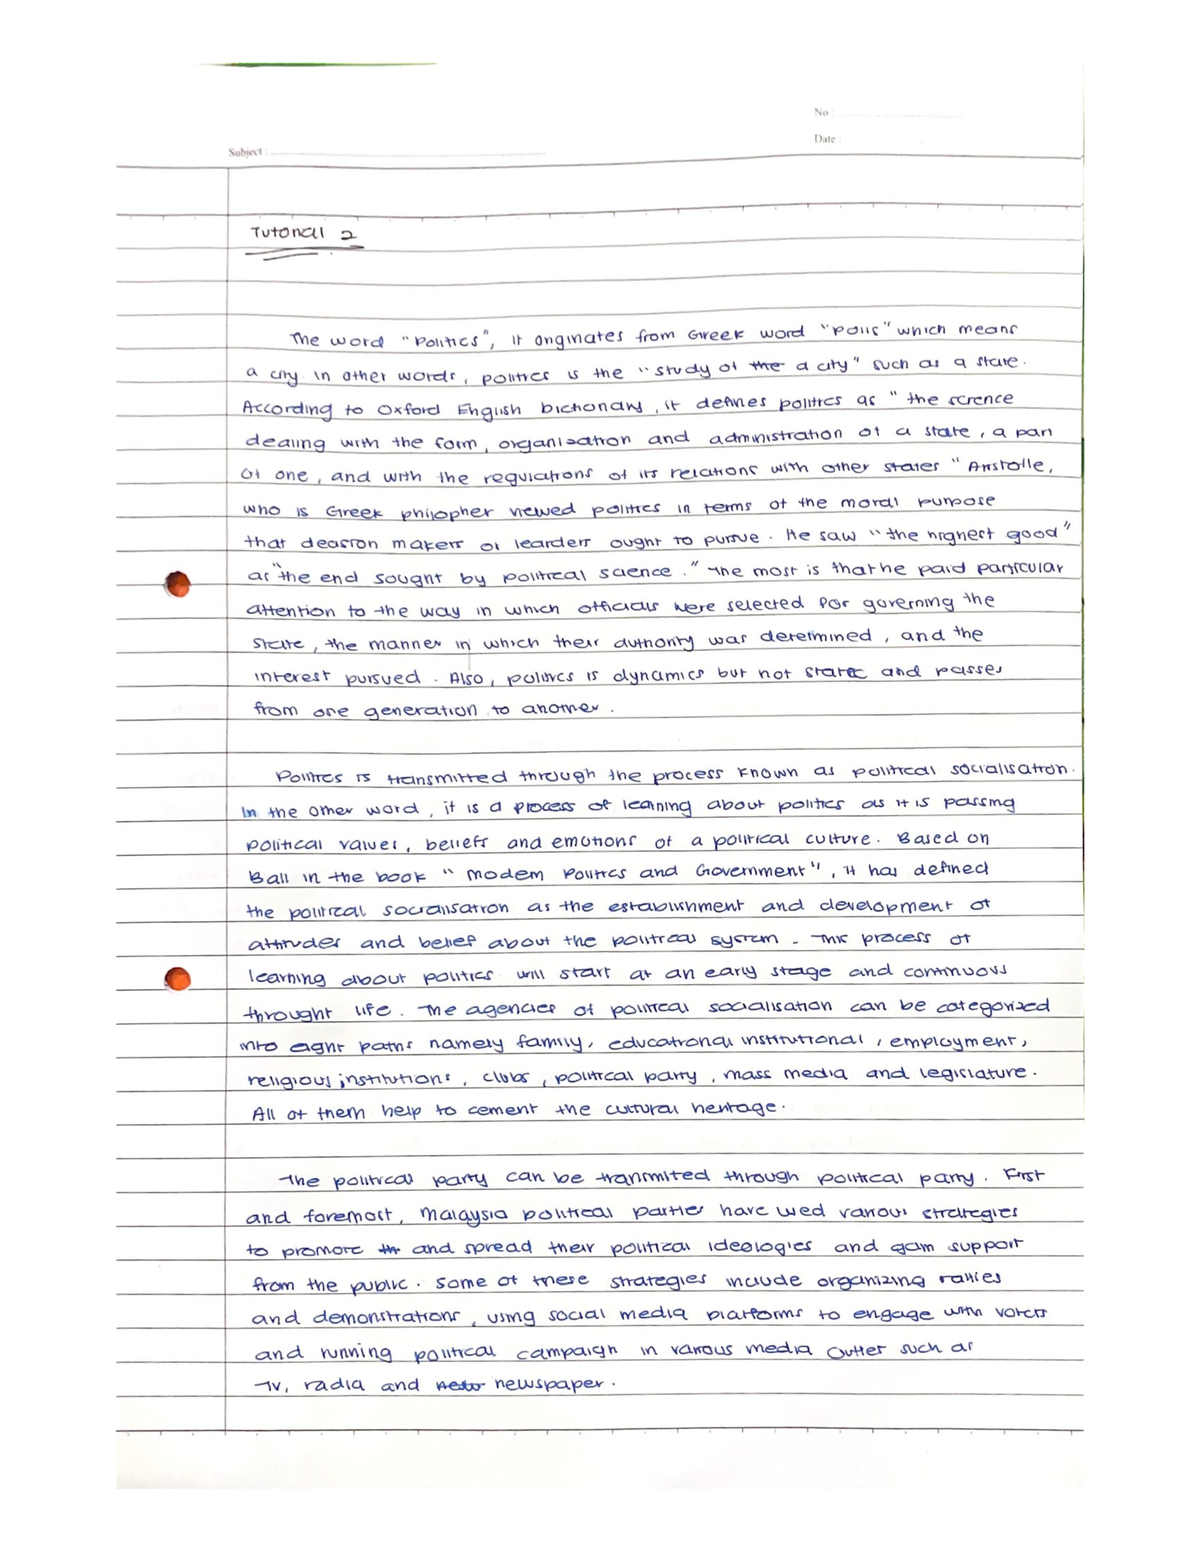 No :
Date :
Subject :
Tutorial 2
The word "Politics", it originates from Greek word "Polis" which means
a city. In other words, politics is the "study of the a city" such as a state.
According to Oxford English Dictionary, it defines politics as "the science
dealing with the form, organisation and administration of a state, a part
of one, and with the regulations of its relations with other states" Aristotle,
who is Greek philopher viewed politics in terms of the moral purpose
that decision makers or learders ought to pursue. He saw "the highest good"
as "the end sought by political science." The most is that he paid particular
attention to the way in which officials were selected for governing the
state, the manner in which their authority was determined, and the
interest pursued. Also, politics is dynamics but not static and passes
from one generation to another.
Politics is transmitted through the process known as political socialisation.
In the other word, it is a process of learning about politics as it is passing
political values, beliefs and emotions of a political culture. Based on
Ball in the book "Modern Politics and Government", it has defined
the political socialisation as the establishment and development of
attitudes and belief about the political system. This process of
learning about politics will start at an early stage and continuous
throught life. The agencies of political socialisation can be categorized
into eight paths namely family, educational institutional, employment,
religious institutions, clubs, political party, mass media and legislature.
All of them help to cement the cultural heritage.
The political party can be transmited through political party. First
and foremost, Malaysia political parties have used various strategies
to promote and spread their political ideologies and gain support
from the public. Some of these strategies include organizing rallies
and demonstrations, using social media platforms to engage with voters
and running political campaign in various media outlet such as
TV, radia and newspaper.